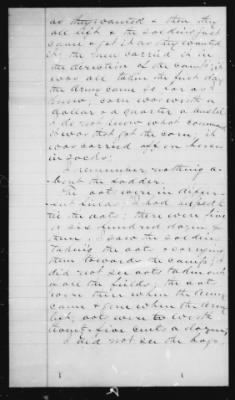 as they wanted & then they
all left & the soldiers just
came & got it as they wanted
it; the men carried it in
the direction of the camps; it
was all taken the first day
the army came so far as I
know; corn was worth a
dollar & a quarter a bushel
I do not know what
it was that got the corn; it
was carried off on horses
in sacks.
I remember nothing a-
bout the fodder.
The oats were in differ-
ent fields; I had helped to
tie the oats; there were five
or six hundred dozen &
I saw the soldiers
taking the oats & carrying
them towards the camps; I
did not see oats taken out
were the fields; the oats
were there when the army
came & gone when the army
left; oats were worth
twenty five cents a dozen
I did not see the hogs